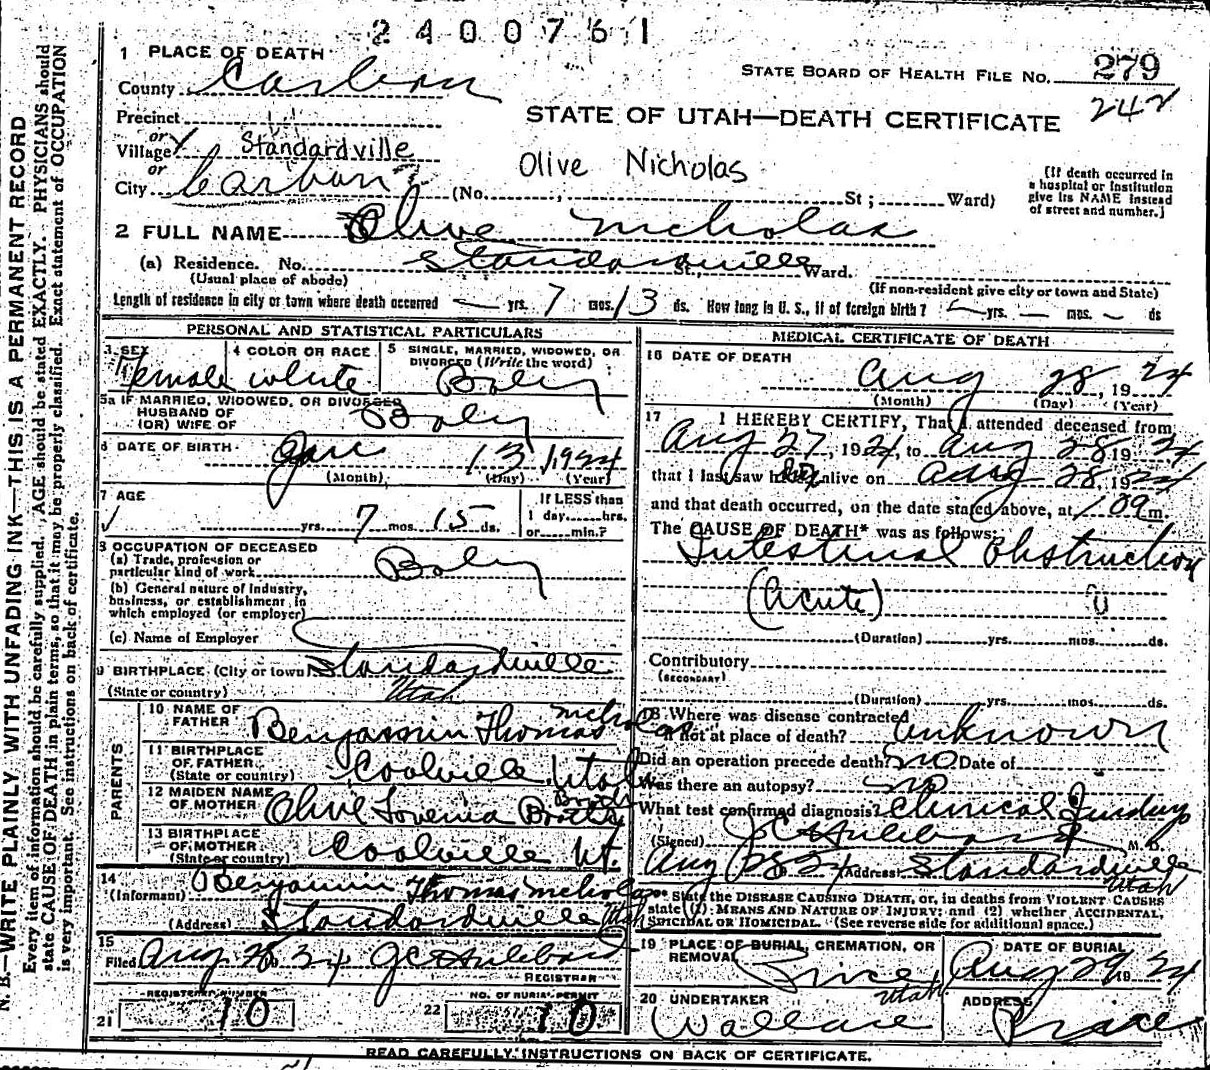 2400761
1 PLACE OF DEATH
STATE BOARD OF HEALTH FILE No. 279
County Carbon
242
STATE OF UTAH—DEATH CERTIFICATE
Precinct
or
Village Standardville
Olive Nicholas
or
City Carbon (No. , St ; Ward)
(If death occurred in
a hospital or institution
give its NAME instead
of street and number.)
2 FULL NAME Olive Nicholas
(a) Residence. No. Standardville St., Ward.
(Usual place of abode)
(If non-resident give city or town and State)
Length of residence in city or town where death occurred — yrs. 7 mos. 13 ds. How long in U. S., if of foreign birth? — yrs. — mos. — ds
PERSONAL AND STATISTICAL PARTICULARS
3 SEX
Female
4 COLOR OR RACE
white
5 SINGLE, MARRIED, WIDOWED, OR
DIVORCED (Write the word)
5a IF MARRIED, WIDOWED, OR DIVORCED
HUSBAND OF
(OR) WIFE OF
6 DATE OF BIRTH Jan 13 1924
(Month) (Day) (Year)
7 AGE
yrs. 7 mos. 15 ds.
If LESS than
1 day......hrs.
or......min.?
8 OCCUPATION OF DECEASED
(a) Trade, profession or
particular kind of work
(b) General nature of industry,
business, or establishment in
which employed (or employer)
(c) Name of Employer
9 BIRTHPLACE (City or town) Standardville
(State or country) Utah
PARENTS
10 NAME OF
FATHER Benjamin Thomas Nicholas
11 BIRTHPLACE
OF FATHER
(State or country) Coalville, Utah
12 MAIDEN NAME
OF MOTHER Olive
13 BIRTHPLACE
OF MOTHER
(State or country) Coalville Ut.
14
(Informant) Benjamin Thomas Nicholas
(Address) Standardville Utah
15
Filed Aug 28 24
REGISTRAR
REGISTERED NUMBER
21 10
NO. OF BURIAL PERMIT
22 10
MEDICAL CERTIFICATE OF DEATH
16 DATE OF DEATH
Aug 28, 1924
(Month) (Day) (Year)
17 I HEREBY CERTIFY, That I attended deceased from
Aug 27, 1924, to Aug 28 1924
that I last saw her alive on Aug 28 1924
and that death occurred, on the date stated above, at 109 m.
The CAUSE OF DEATH* was as follows:
Intestinal Obstruction
(Acute)
(Duration) yrs. mos. ds.
Contributory
(SECONDARY)
(Duration) yrs. mos. ds.
18 Where was disease contracted
if not at place of death? Unknown
Did an operation precede death? no Date of
Was there an autopsy? no
What test confirmed diagnosis? Clinical Findings
(Signed) M. D.
Aug 28 24 (Address) Standardville Utah
* State the DISEASE CAUSING DEATH, or, in deaths from VIOLENT CAUSES
state (1) MEANS AND NATURE OF INJURY; and (2) whether ACCIDENTAL,
SUICIDAL OR HOMICIDAL. (See reverse side for additional space.)
19 PLACE OF BURIAL, CREMATION, OR
REMOVAL
Price, Utah
DATE OF BURIAL
Aug 29 1924
20 UNDERTAKER
Wallace
ADDRESS
Price
READ CAREFULLY INSTRUCTIONS ON BACK OF CERTIFICATE.
N. B.—WRITE PLAINLY WITH UNFADING INK—THIS IS A PERMANENT RECORD
Every item of information should be carefully supplied. AGE should be stated EXACTLY. PHYSICIANS should
state CAUSE OF DEATH in plain terms, so that it may be properly classified. Exact statement of OCCUPATION
is very important. See instructions on back of certificate.